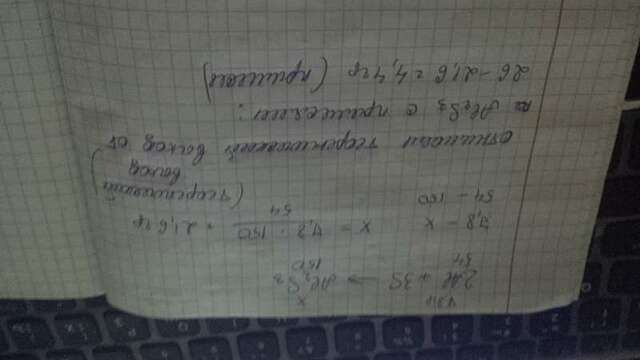 7,8гр x
2Al + 3S → Al₂S₃
54 150
7,8 – x x = 7,8 · 150 / 54 = 21,6 гр
54 – 150 (теоретический
выход)
отнимаем теоретический выход от
Al₂S₃ с примесями:
26 – 21,6 = 4,4 гр (примеси)